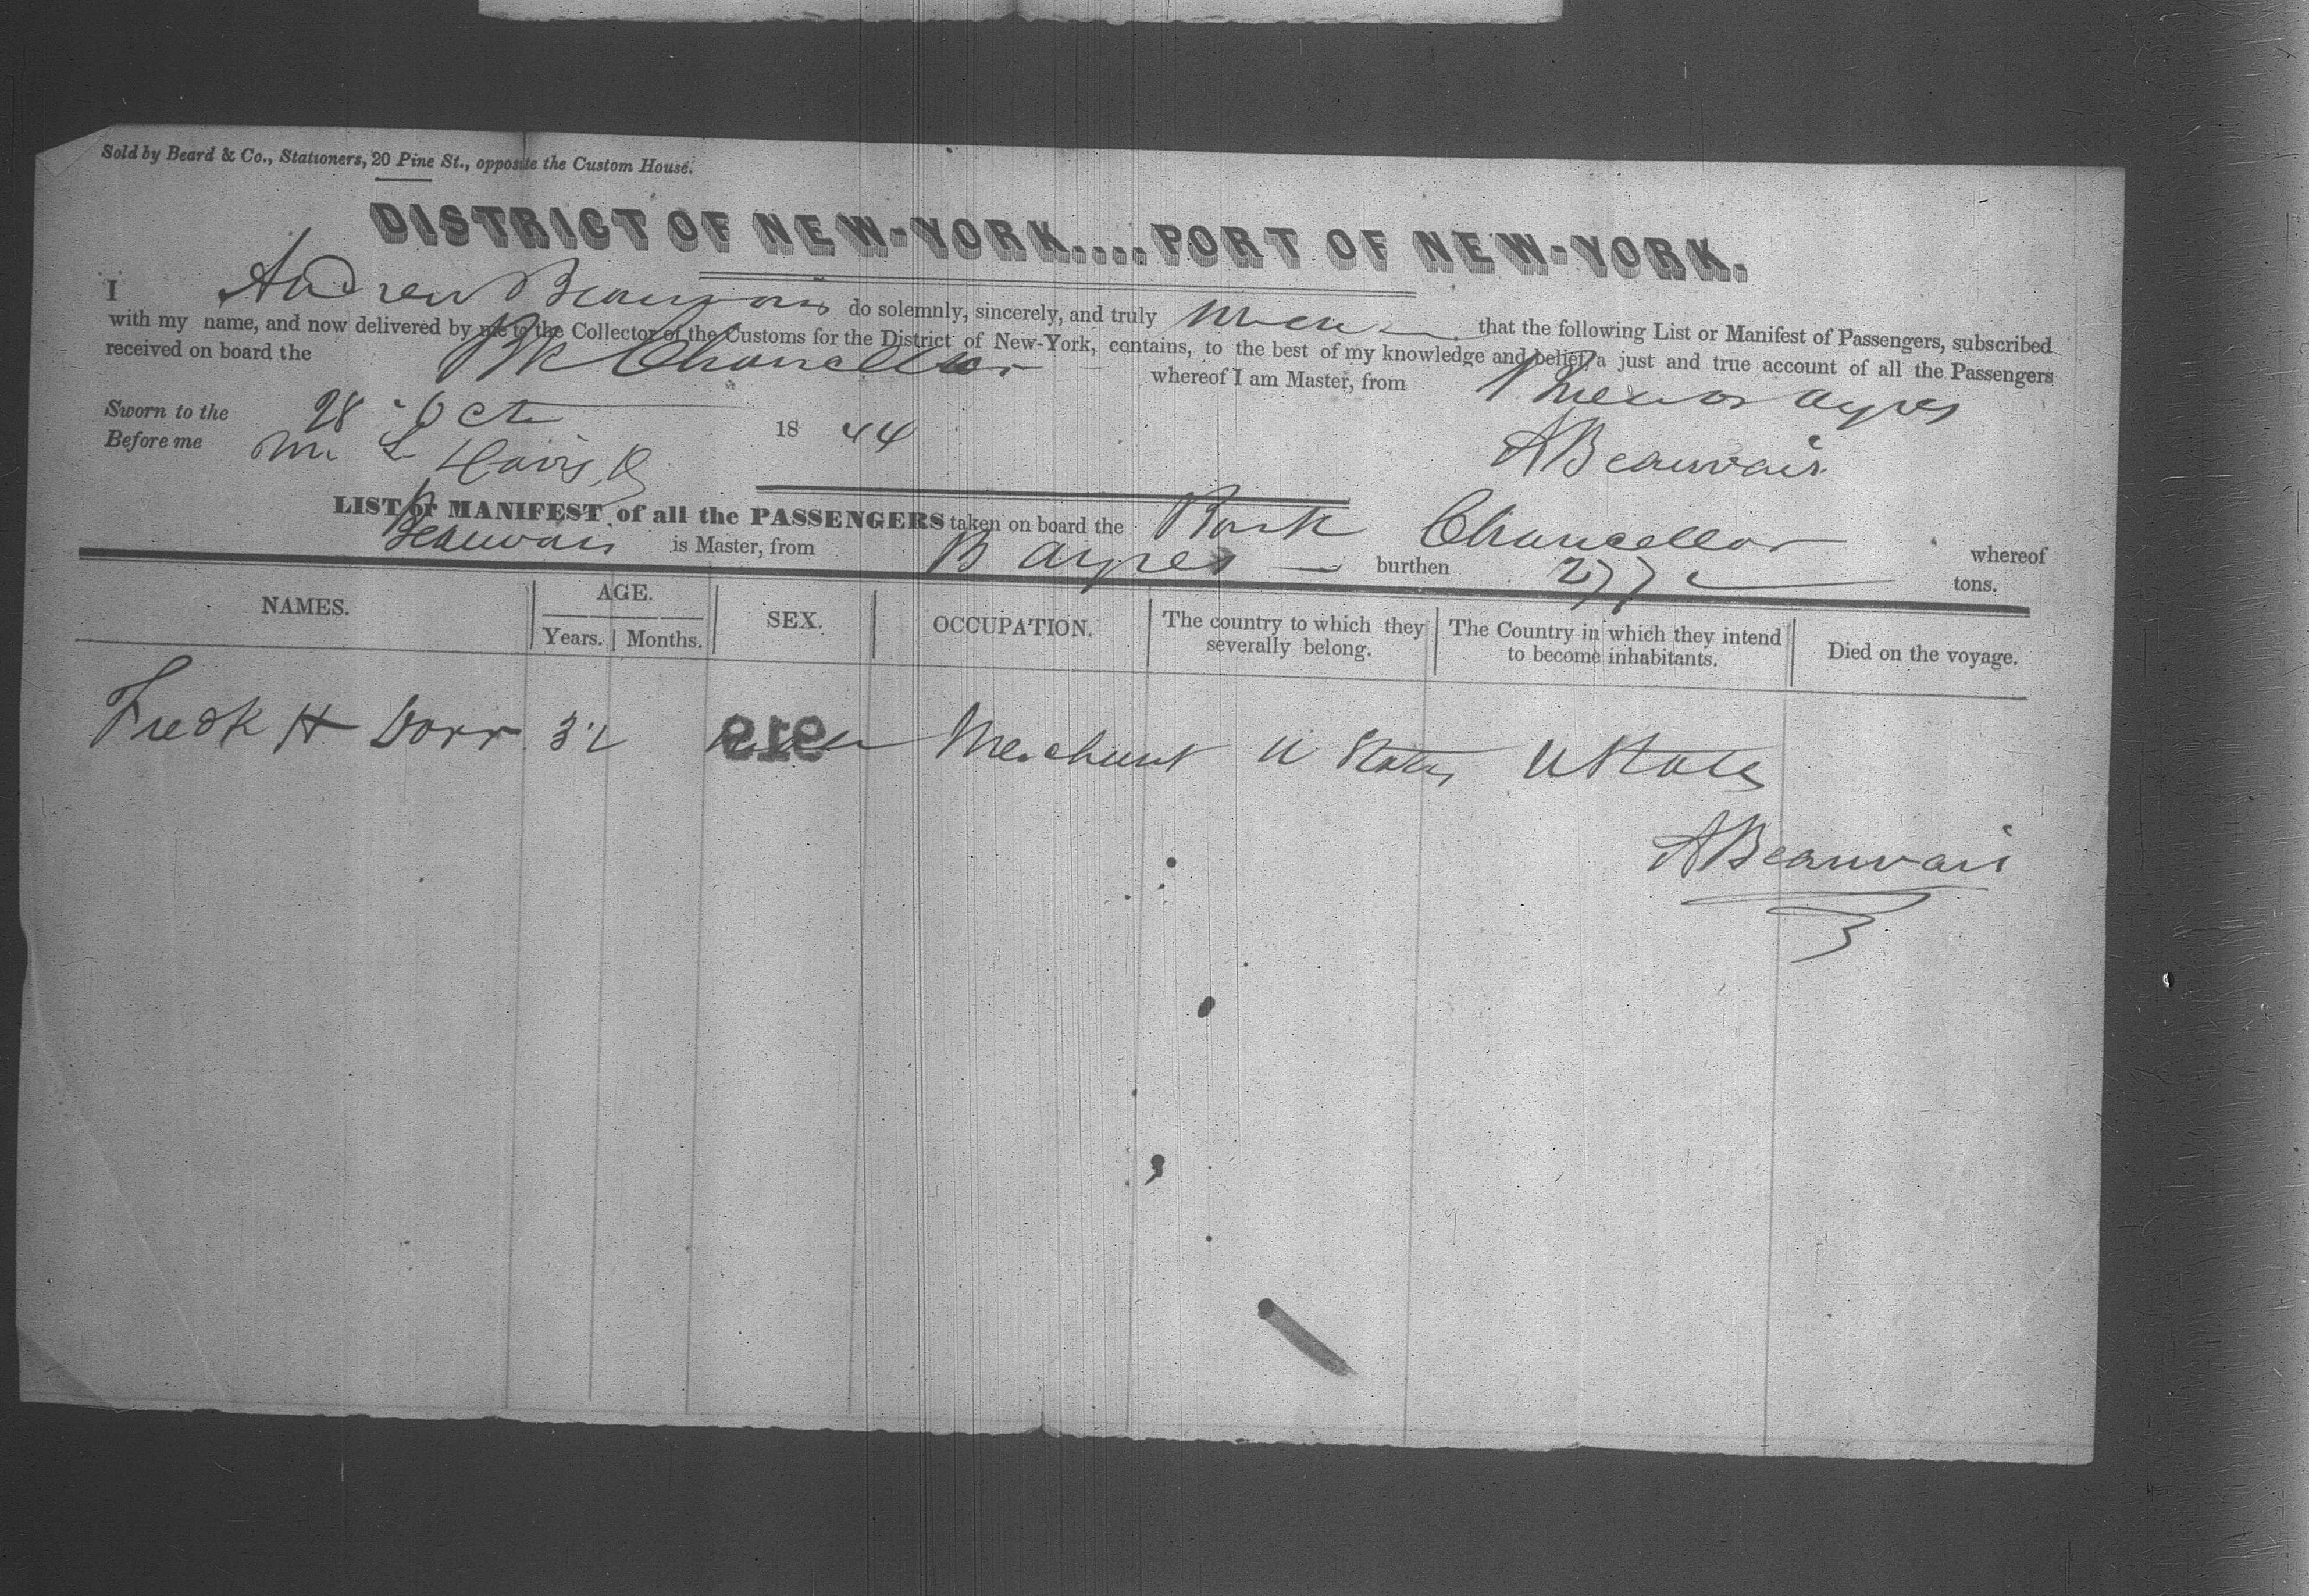 Sold by Beard & Co., Stationers, 20 Pine St., opposite the Custom House.
DISTRICT OF NEW-YORK....PORT OF NEW-YORK.
I Andrew Beauvais do solemnly, sincerely, and truly swear that the following List or Manifest of Passengers, subscribed
with my name, and now delivered by me to the Collector of the Customs for the District of New-York, contains, to the best of my knowledge and belief, a just and true account of all the Passengers
received on board the Bk Chancellor whereof I am Master, from Buenos Ayres
Sworn to the 28 Oct 1844
Before me
A Beauvais
LIST or MANIFEST of all the PASSENGERS taken on board the Bark Chancellor whereof
Beauvais is Master, from B Ayres burthen 277 tons.
NAMES. AGE. Years. Months. SEX. OCCUPATION. The country to which they severally belong. The Country in which they intend to become inhabitants. Died on the voyage.
Fredk H Dorr 32 Male Merchant U States U States
919
A Beauvais